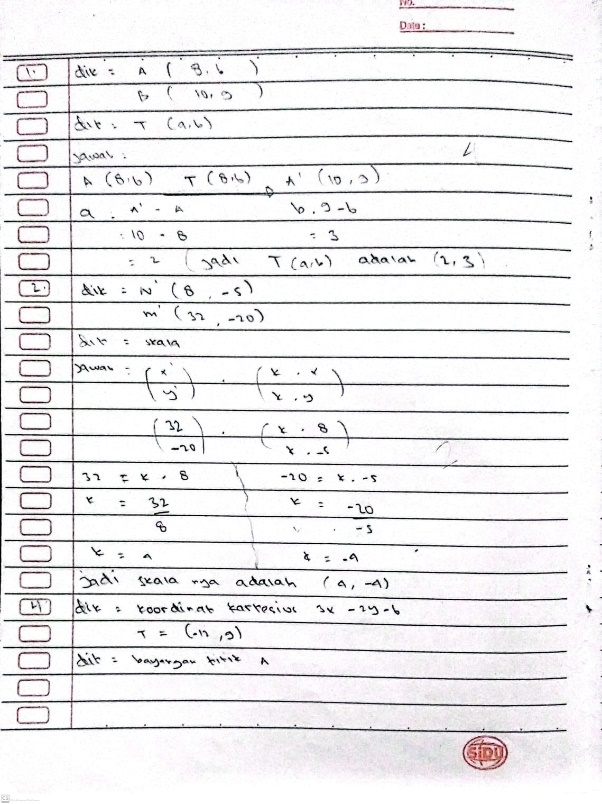 No.
Date :
1. dik = A ( 8, 6 )
B ( 10, 9 )
dit : T (a,b)
Jawab :
A (8,6) T (8,6) A' (10,9)
a . A' - A b. 9-6
: 10 - 8 = 3
= 2 ( Jadi T (a,b) adalah (2,3)
2. dik = N' (8, -5)
m' (32, -20)
dit = skala
Jawab : (x' y') . (k . x k . y)
(32 -20) . (k . 8 k . -5)
32 = k . 8 -20 = k . -5
k = 32/8 k = -20/-5
k = 4 k = -4
Jadi skala nya adalah (4, -4)
4) dik = koordinat kartesius 3x - 2y - 6
T = (-12, 9)
dit = bayangan titik A
SIDU